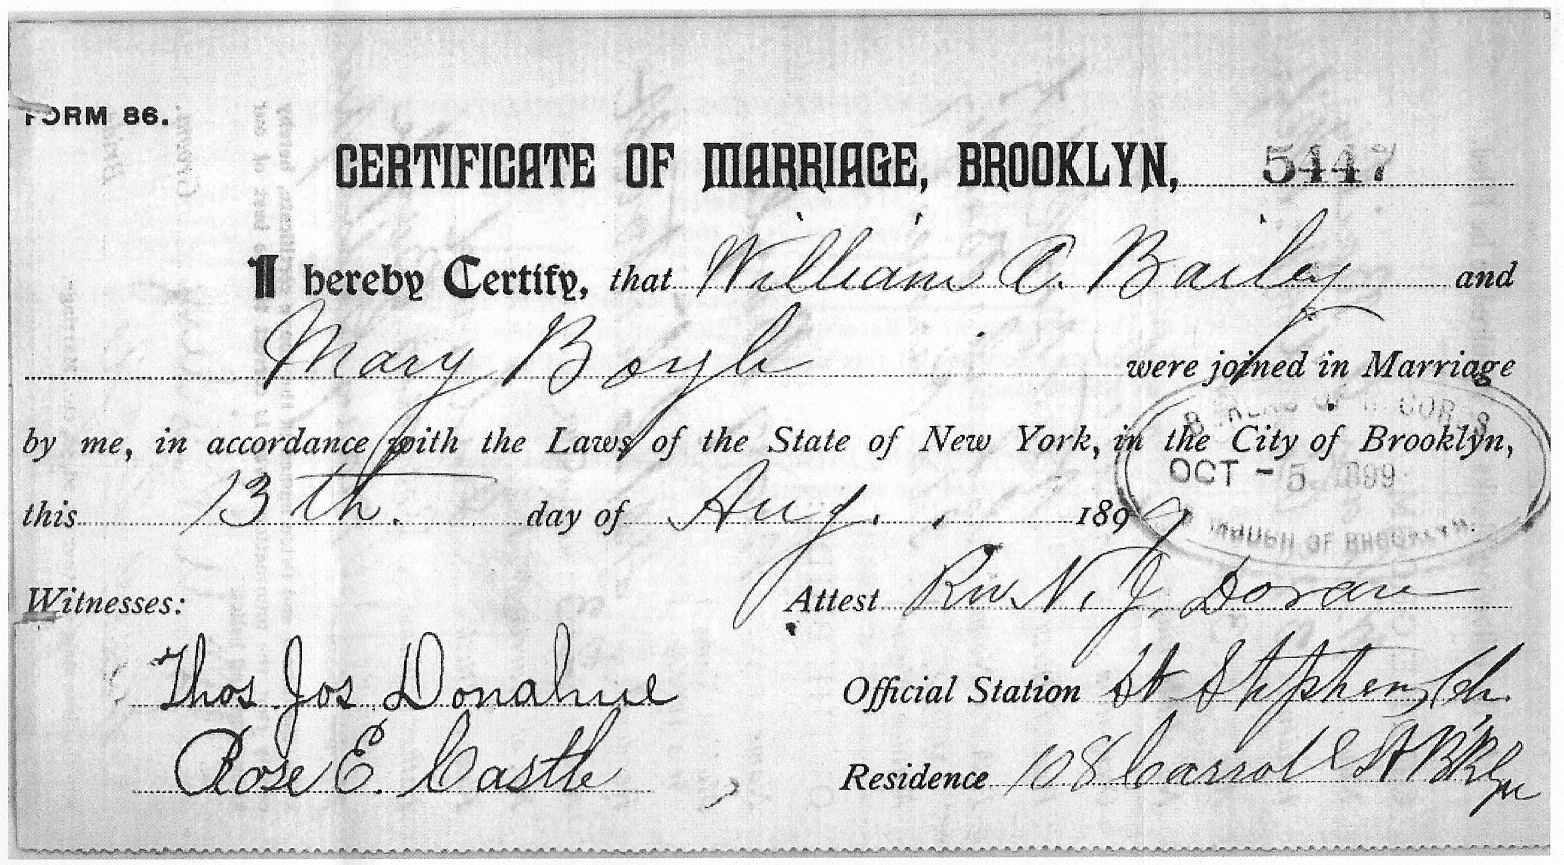 FORM 86.
CERTIFICATE OF MARRIAGE, BROOKLYN, 5447
I hereby Certify, that William C. Bailey and
Mary Boyle were joined in Marriage
by me, in accordance with the Laws of the State of New York, in the City of Brooklyn,
this 13th. day of Aug. 1899
BUREAU OF RECORDS
OCT - 5 1899
BOROUGH OF BROOKLYN
Witnesses:
Attest Rev N. J. Doran
Thos Jos Donahue
Official Station St Stephens Ch.
Rose E. Castle
Residence 108 Carroll St B'klyn